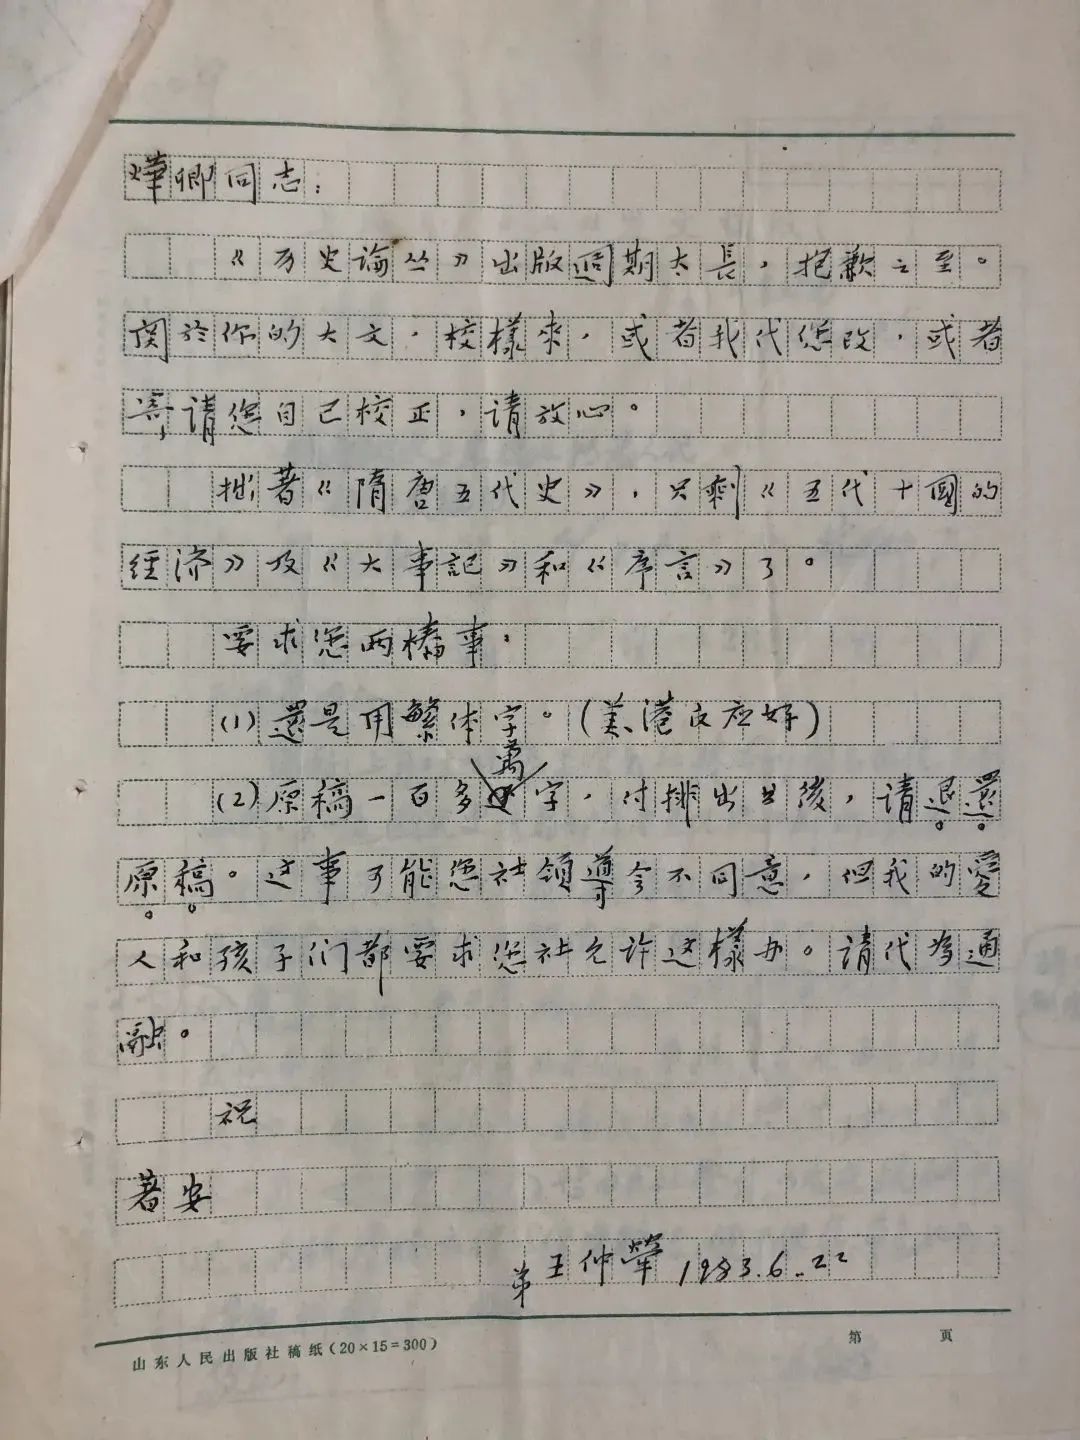 燁卿同志：
《历史論丛》出版週期太長，抱歉之至。
関於你的大文，校樣來，或者我代您改，或者
寄请您自己校正，请放心。
拙著《隋唐五代史》，只剩《五代十國的
经济》及《大事記》和《序言》了。
要求您两樁事。
(1)還是用繁体字。(美、港反应好)
(2)原稿一百多萬字，付排出书後，请退還
原稿。这事可能您社领導会不同意，但我的愛
人和孩子们都要求您社允许这樣办。請代为通
融。
祝
著安
弟王仲犖 1983.6.22
山东人民出版社稿纸(20×15=300)
第 页